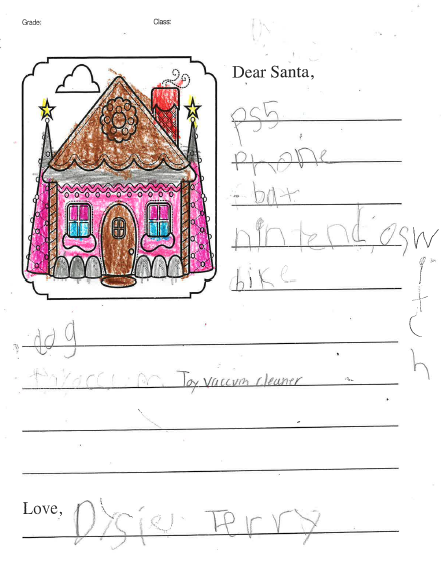 Grade: Class:
Dear Santa,
ps5
phone
bat
nintendosw
itch
bike
dog
Toy vaccum cleaner
Love, Terry